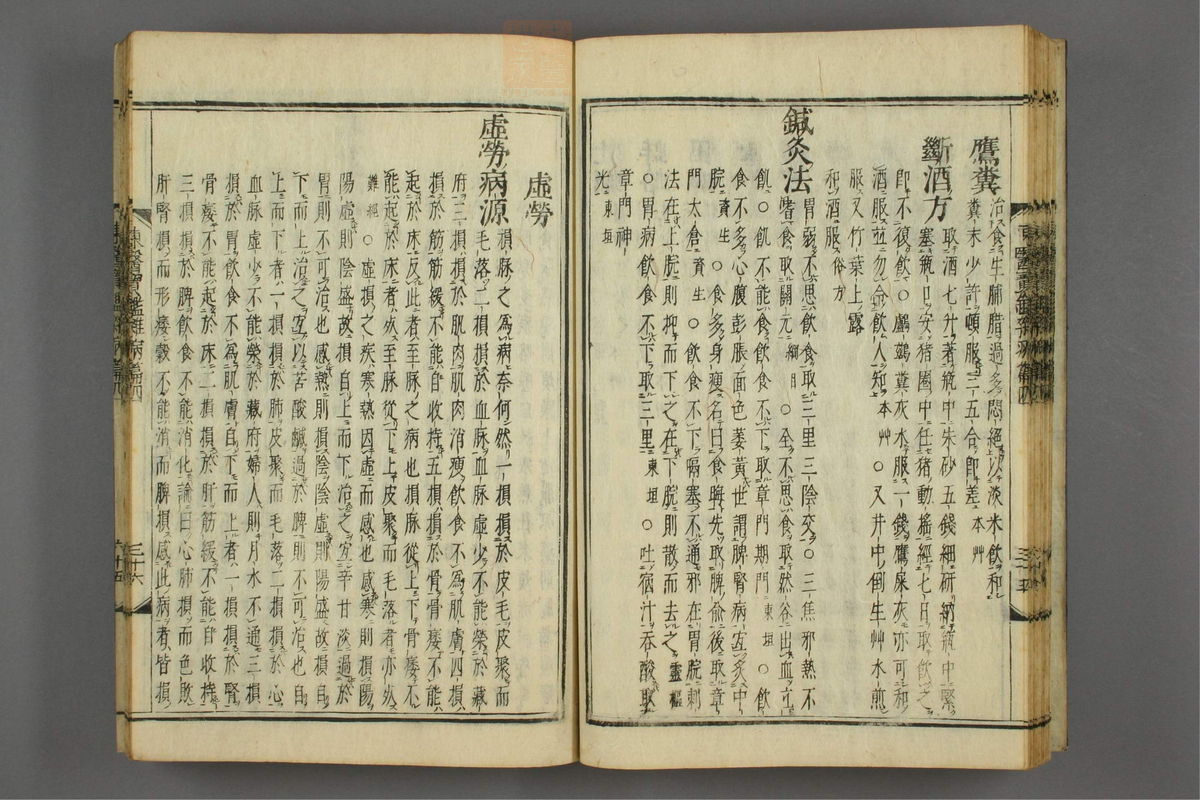 鷹糞
治食生脯腊過多悶絕以淡米飮和
糞末少許頓服三五合卽差本艸
斷酒方
取酒七升著甁中朱砂五錢細硏納甁中緊
塞甁口安猪圈中任猪動搖經七日取飮之
卽不復飮○鸕鷀糞灰水服一錢鷹屎灰亦可和
酒服並勿令飮人知本艸○又井中倒生艸水煎
服又竹葉上露
和酒服俗方
鍼灸法
胃弱不思飮食取三里三陰交○三焦邪熱不
嗜食取關元綱目○全不思食取然谷出血立
飢○飢不能食飮食不下取章門期門東垣○飮
食不多心腹膨脹面色萎黃世謂脾腎病宜灸中
脘資生○食多身瘦名曰食晦先取脾兪後取章
門太倉資生○飮食不下膈塞不通邪在胃脘刺
法在上脘則抑而下之在下脘則散而去之靈樞
○胃病飮食不下取三里東垣○吐宿汁呑酸取
章門神
光東垣
虛勞
虛勞病源
損脉之爲病奈何然一損損於皮毛皮聚而
毛落二損損於血脉血脉虛少不能榮於藏
府三損損於肌肉肌肉消瘦飮食不爲肌膚四損
損於筋筋緩不能自收持五損損於骨骨痿不能
起於床反此者至脉之病也損脉從上下骨痿不
能起於床者死至脉從下上皮聚而毛落者亦死
難經○虛損之疾寒熱因虛而感也感寒則損陽
陽虛則陰盛故損自上而下治之宜辛甘淡過於
胃則不可治也感熱則損陰陰虛則陽盛故損自
下而上治之宜以苦酸鹹過於脾則不可治也自
上而下者一損損於肺皮聚而毛落二損損於心
血脉虛少不能榮於藏府婦人則月水不通三損
損於胃飮食不爲肌膚自下而上者一損損於腎
骨痿不能起於床二損損於肝筋緩不能自收持
三損損於脾飮食不能消化論曰心肺損而色敗
肝腎損而形痿穀不能消而脾損感此病者皆損
東醫寶鑑雜病篇四
三十六